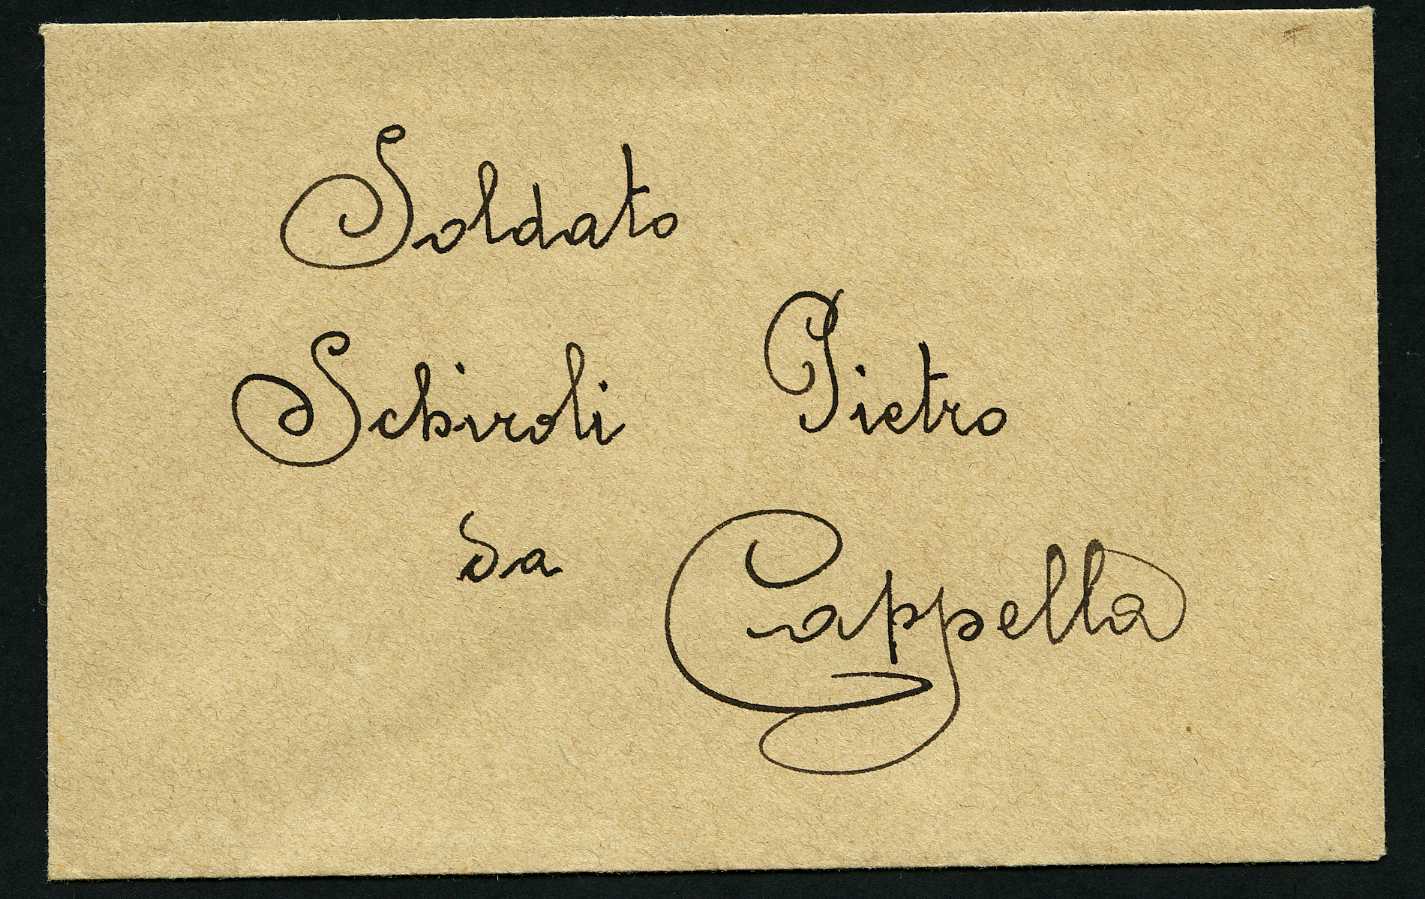 Soldato
Schiroli Pietro
da Cappella